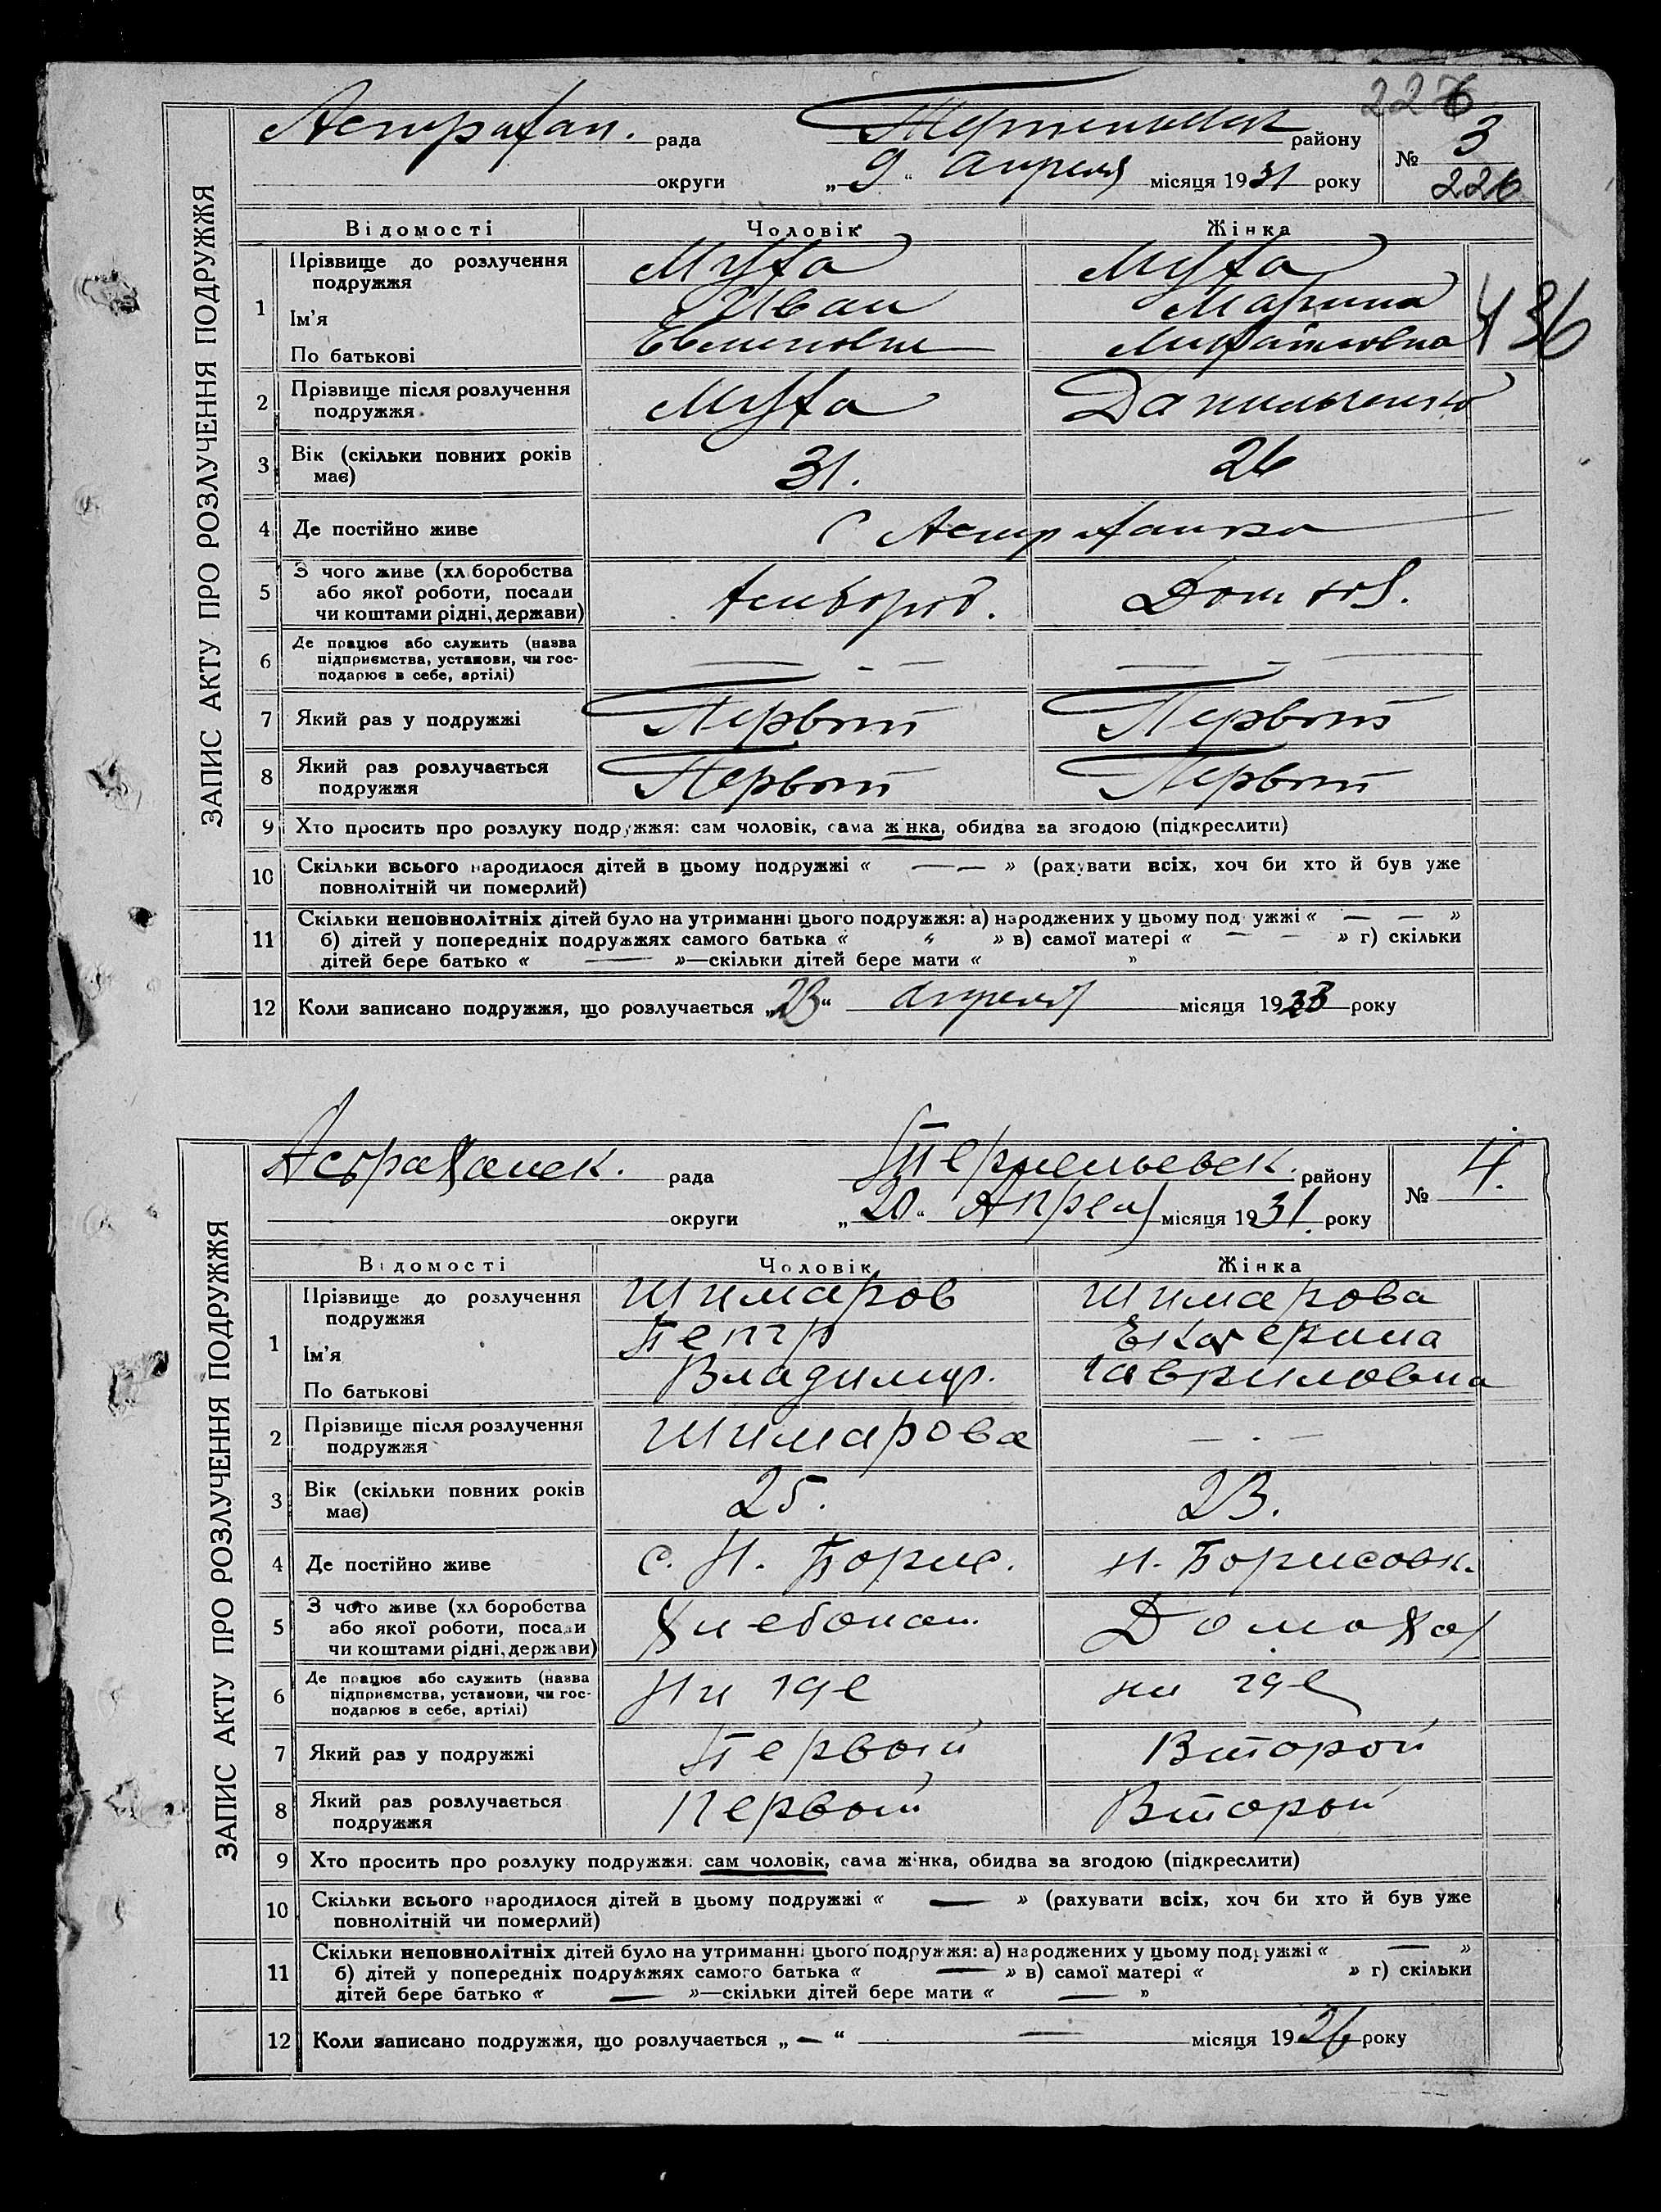 226
Астрахан. рада Терпеньевск району № 3
округи „9“ апреля місяця 1931 року 226
ЗАПИС АКТУ ПРО РОЗЛУЧЕННЯ ПОДРУЖЖЯ
Відомості Чоловік Жінка
1 Прізвище до розлучення подружжя Муха Муха
Ім'я Иван Марина
По батькові
436
2 Прізвище після розлучення подружжя Муха Данильченко
3 Вік (скільки повних років має) 31. 26
4 Де постійно живе С Астраханка
5 З чого живе (хліборобства або якої роботи, посади чи коштами рідні, держави) Хлебороб. Дом хоз.
6 Де працює або служить (назва підприємства, установи, чи господарює в себе, артілі) — - — — - —
7 Який раз у подружжі Первый Первый
8 Який раз розлучається подружжя Первый Первый
9 Хто просить про розлуку подружжя: сам чоловік, сама жінка, обидва за згодою (підкреслити)
10 Скільки всього народилося дітей в цьому подружжі « — — » (рахувати всіх, хоч би хто й був уже
повнолітній чи померлий)
11 Скільки неповнолітніх дітей було на утриманні цього подружжя: а) народжених у цьому подружжі « — — »
б) дітей у попередніх подружжях самого батька « " » в) самої матері « — — » г) скільки
дітей бере батько « — »—скільки дітей бере мати « »
12 Коли записано подружжя, що розлучається „23“ апреля місяця 19 року
Астраханск. рада Терпеньевск. району № 4.
округи „20“ Апреля місяця 1931. року
ЗАПИС АКТУ ПРО РОЗЛУЧЕННЯ ПОДРУЖЖЯ
Відомості Чоловік Жінка
1 Прізвище до розлучення подружжя Шимаров Шимарова
Ім'я Петр Екатерина
По батькові Владимир. Гавриловна
2 Прізвище після розлучення подружжя Шимарова — . —
3 Вік (скільки повних років має) 25. 23.
4 Де постійно живе с. Н. Борис. Н. Борисовк.
5 З чого живе (хліборобства або якої роботи, посади чи коштами рідні, держави) Хлебопаш. Домохоз
6 Де працює або служить (назва підприємства, установи, чи господарює в себе, артілі) Ни где ни где
7 Який раз у подружжі Первый Второй
8 Який раз розлучається подружжя Первый Второй
9 Хто просить про розлуку подружжя: сам чоловік, сама жінка, обидва за згодою (підкреслити)
10 Скільки всього народилося дітей в цьому подружжі « — » (рахувати всіх, хоч би хто й був уже
повнолітній чи померлий)
11 Скільки неповнолітніх дітей було на утриманні цього подружжя: а) народжених у цьому подружжі « — »
б) дітей у попередніх подружжях самого батька « — » в) самої матері « » г) скільки
дітей бере батько « — »—скільки дітей бере мати « — »
12 Коли записано подружжя, що розлучається „—“ — місяця 1926 року